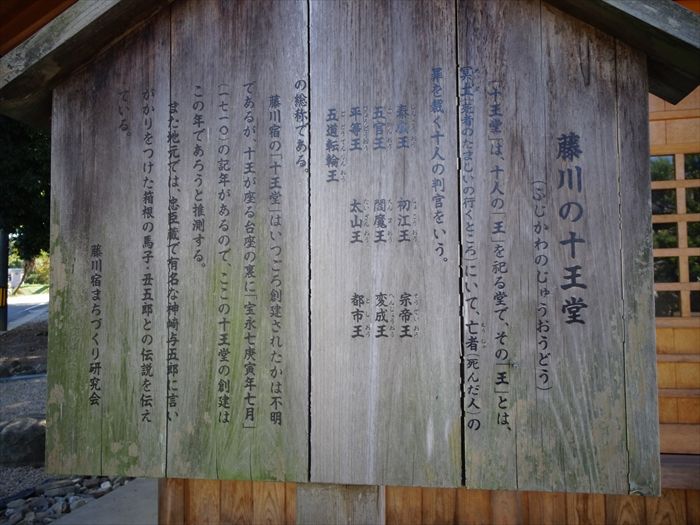 藤川の十王堂
(ふじかわのじゅうおうどう)
「十王堂」は、十人の「王」を祀る堂で、その「王」とは、
冥土(死者のたましいの行くところ)にいて、亡者(死んだ人)の
罪を裁く十人の判官をいう。
秦広王 初江王 宗帝王
五官王 閻魔王 変成王
平等王 太山王 都市王
五道転輪王
の総称である。
藤川宿の「十王堂」はいつごろ創建されたかは不明
であるが、十王が座る台座の裏に「宝永七庚寅年七月」
(一七一〇)の記年があるので、ここの十王堂の創建は
この年であろうと推測する。
また地元では、忠臣蔵で有名な神崎与五郎に言い
がかりをつけた箱根の馬子・丑五郎との伝説を伝え
ている。
藤川宿まちづくり研究会